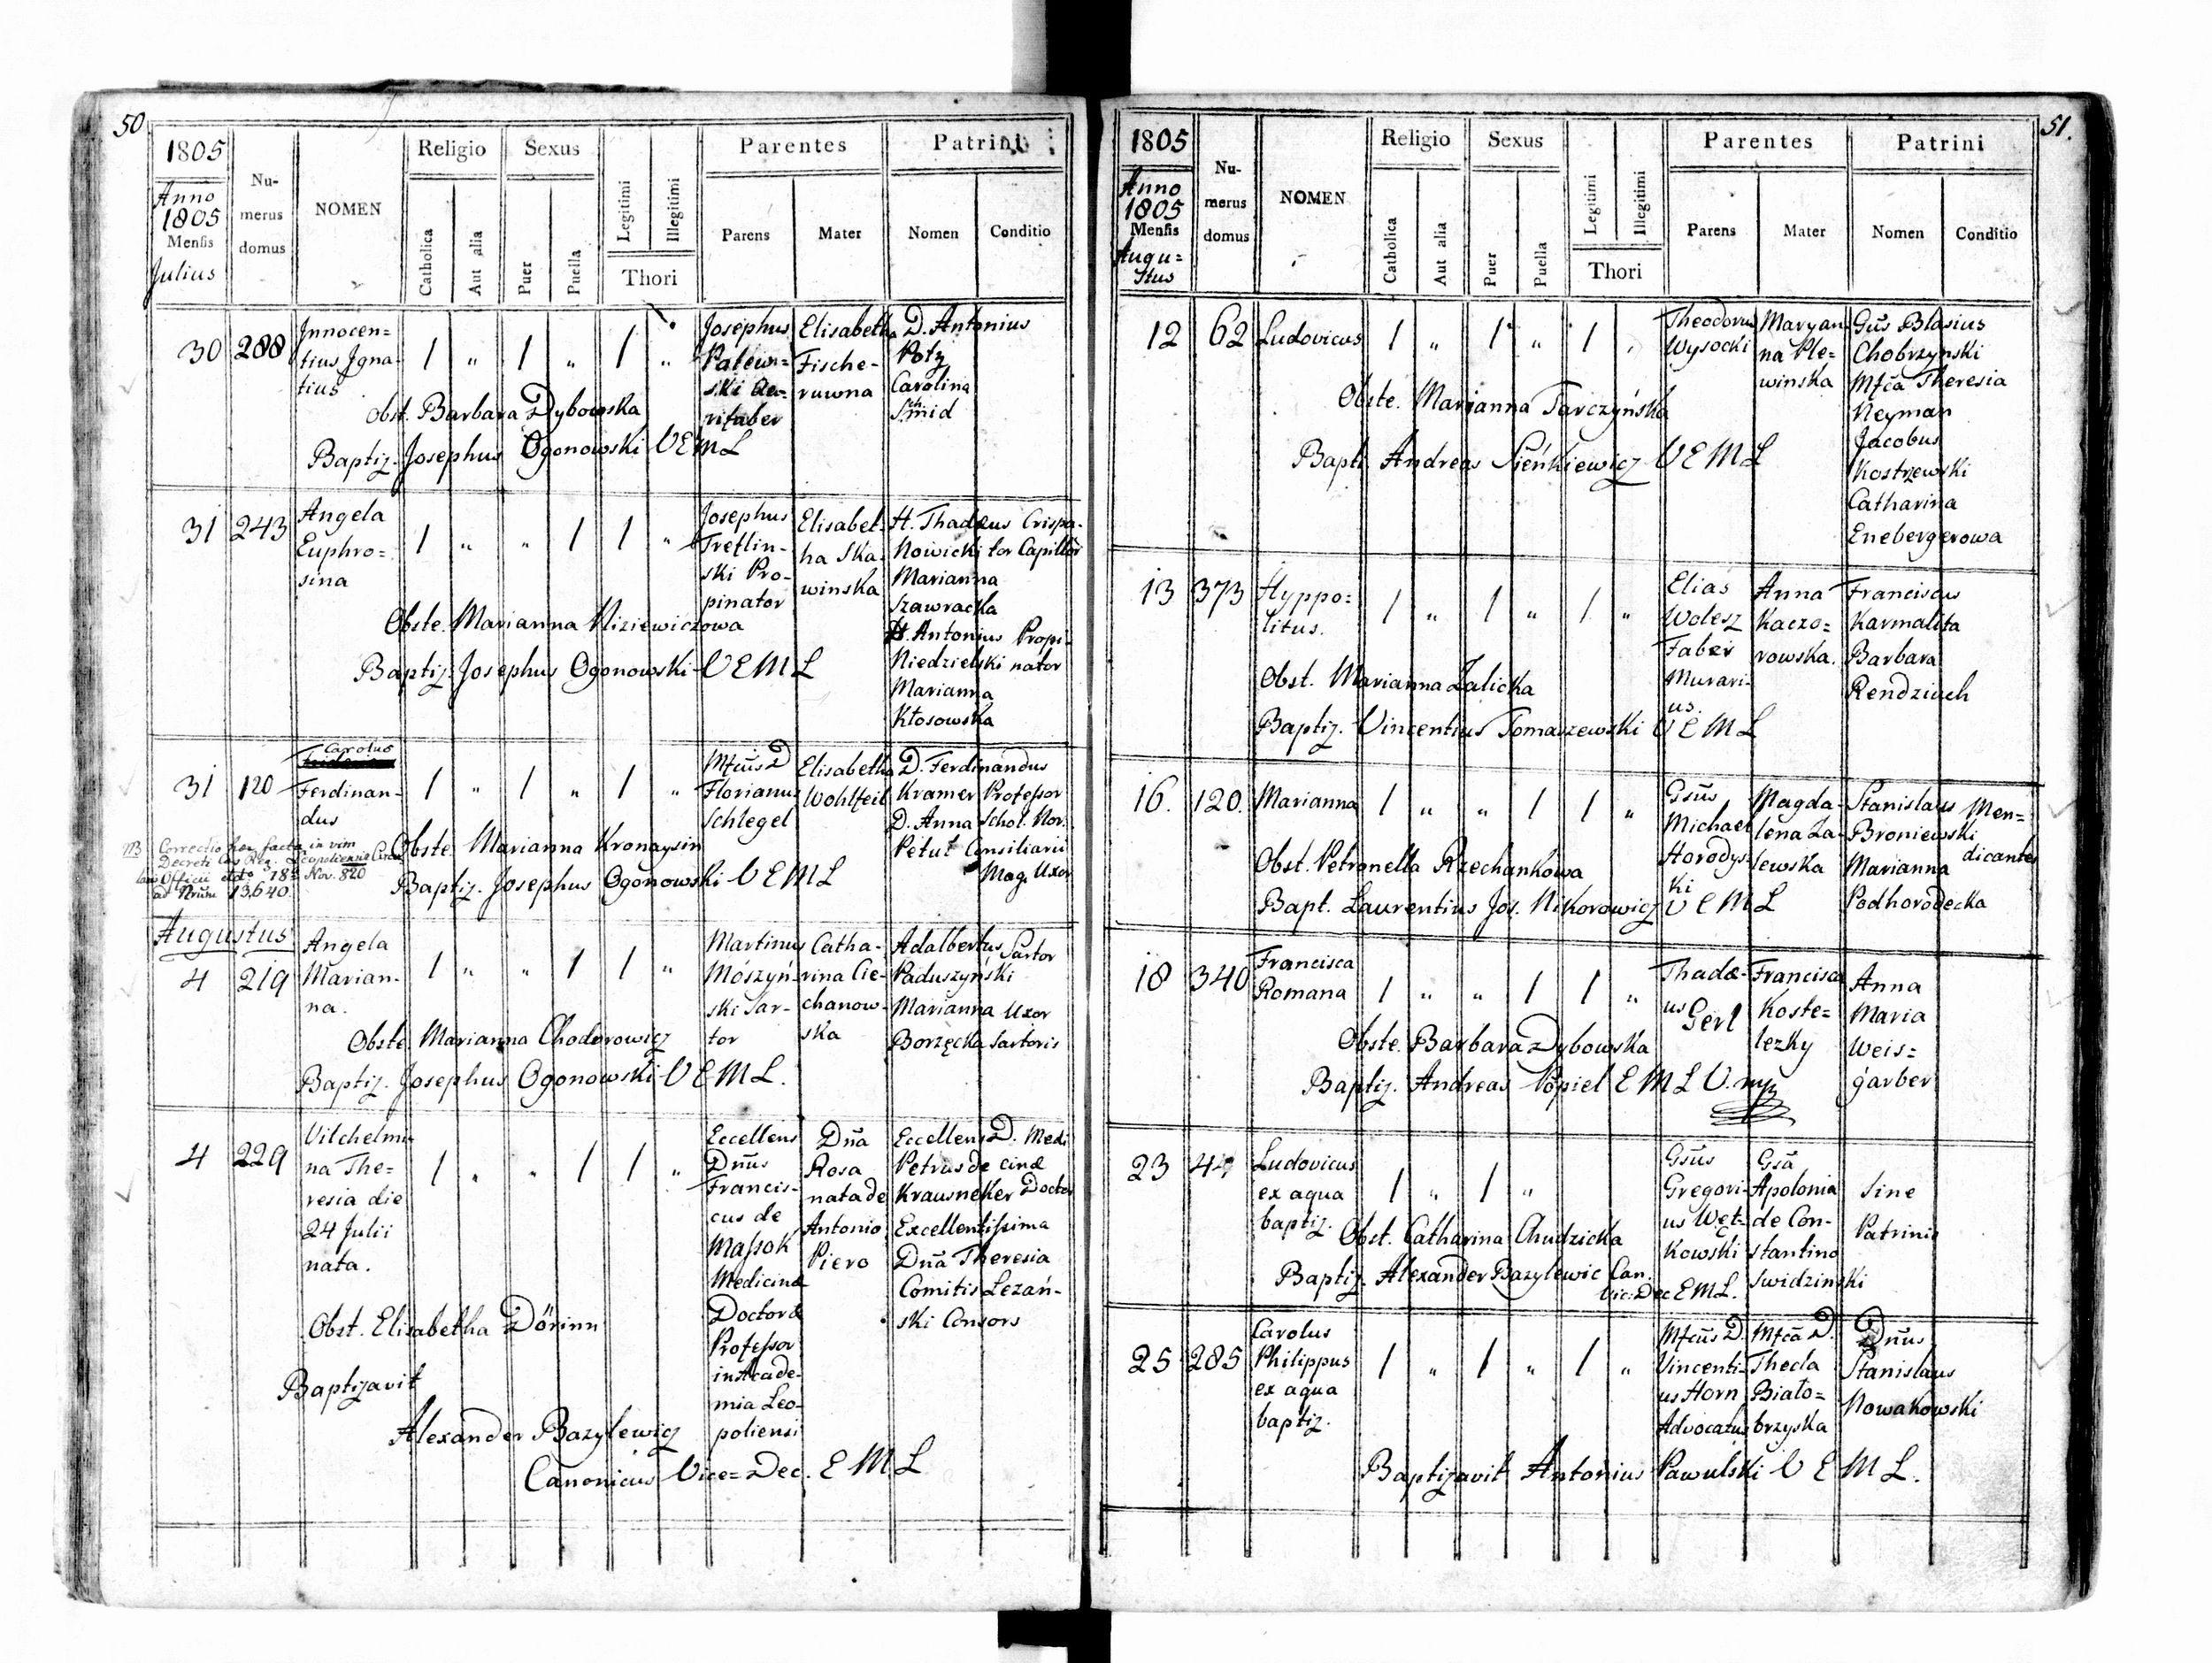 50
1805
Anno
1805
Mensis
Julius
Nu-
merus
domus
NOMEN
Religio
Catholica
Aut alia
Sexus
Puer
Puella
Legitimi
Illegitimi
Thori
Parentes
Parens
Mater
Patrini
Nomen
Conditio
30 288
Innocen=
tius Igna-
tius
/ " / " / "
Josephus
Palew=
ski
Elisabetha
Fische-
ruwna
D. Antonius
Potz
Carolina
Smid
Obst. Barbara Dybowska
Baptiz. Josephus Ogonowski V E M L
31 243
Angela
Euphro=
sina
/ " " / / "
Josephus
Tretlin-
ski Pro-
pinator
Elisabet-
ha Ska-
winska
H. Thadæus Crispa-
Nowicki tor Capillor
Marianna
Szawracka
H. Antonius Propi-
Niedzielski nator
Marianna
Kłosowska
Obste. Marianna Kliziewiczowa
Baptiz. Josephus Ogonowski V E M L
31 120
Carolus
Ferdinan-
dus
/ " / " / "
Mfcus D
Florianus
Schlegel
Elisabetha
Wohlfeil
D. Ferdinandus
Kramer Professor
D. Anna Schol. Nor.
Petut Consiliarii
Mag. Uxor
NB Correctio hæc facta in vim
Decreti Cæs. Reg. Leopoliensis Circu
laris Officii ddto 18 Nov. 820
ad Nrum 13,640.
Obste. Marianna Kronaysin
Baptiz. Josephus Ogonowski V E M L
Augustus
4 219
Angela
Marian-
na.
/ " " / / "
Martinus
Mószyń-
ski Sar-
tor
Catha-
rina Cie-
chanow-
ska
Adalbertus Sartor
Paduszyński
Marianna Uxor
Borzęcka Sartoris
Obste. Marianna Chodorowicz
Baptiz. Josephus Ogonowski V E M L.
4 229
Vilhelmi
na The=
resia die
24 Julii
nata.
/ " " / / "
Eccellens
Dnus
Francis-
cus de
Massok
Medicinæ
Doctor &
Professor
in Acade-
mia Leo-
poliensi
Dna
Rosa
nata de
Antonio
Piero
Eccellens D. Medi
Petrus de cinæ
Krausneker Doctor
Excellentissima
Dna Theresia
Comitis Lezań-
ski Consors
Obst. Elisabetha Dörinn
Baptizavit
Alexander Bazylewicz
Canonicus Vice=Dec. E M L
51.
1805
Anno
1805
Mensis
Augu=
stus
Nu-
merus
domus
NOMEN
Religio
Catholica
Aut alia
Sexus
Puer
Puella
Legitimi
Illegitimi
Thori
Parentes
Parens
Mater
Patrini
Nomen
Conditio
12 62 Ludovicus
/ " / " / "
Theodorus
Wysocki
Maryan
na Ple=
winska
Gsus Blasius
Chobrzynski
Mfca Theresia
Neyman
Jacobus
Kostrzewski
Catharina
Enebergerowa
Obste. Marianna Tarczyńska
Bapti. Andreas Sieńkiewicz V E M L
13 373
Hyppo=
litus.
/ " / " / "
Elias
Wolesz
Faber
Murari-
us.
Anna
Kaczo=
rowska.
Franciscus
Karmalita
Barbara
Rendziuch
Obst. Marianna Zalicka
Baptiz. Vincentius Tomaszewski V E M L
16. 120. Marianna
/ " " / / "
Gsus
Michael
Horodys-
ki
Magda-
lena Za-
lewska
Stanislaus Men=
Broniewski
Marianna dicantes
Podhorodecka
Obst. Petronella Rzechankowa
Bapt. Laurentius Jos. Nikorowicz V E M L
18 340
Francisca
Romana
/ " " / / "
Thadæ-
us Gerl
Francisca
Koste=
lezky
Anna
Maria
Weis=
garber
Obste. Barbara Dybowska
Baptiz. Andreas Popiel E M L V. mpp
23
Ludovicus
ex aqua
baptiz.
/ " / "
Gsus
Gregori-
us Węt-
kowski
Gsa
Apolonia
de Con-
stantino
Swidzinski
Sine
Patrinis
Obst. Catharina Chudzicka
Baptiz. Alexander Bazylewic Can.
Vic: Dec E M L.
25 285
Carolus
Philippus
ex aqua
baptiz.
/ " / " / "
Mfcus D.
Vincenti-
us Horn
Advocatus
Mfca D.
Thecla
Biało=
brzyska
Dnus
Stanislaus
Nowakowski
Baptizavit Antonius Pawulski V E M L.